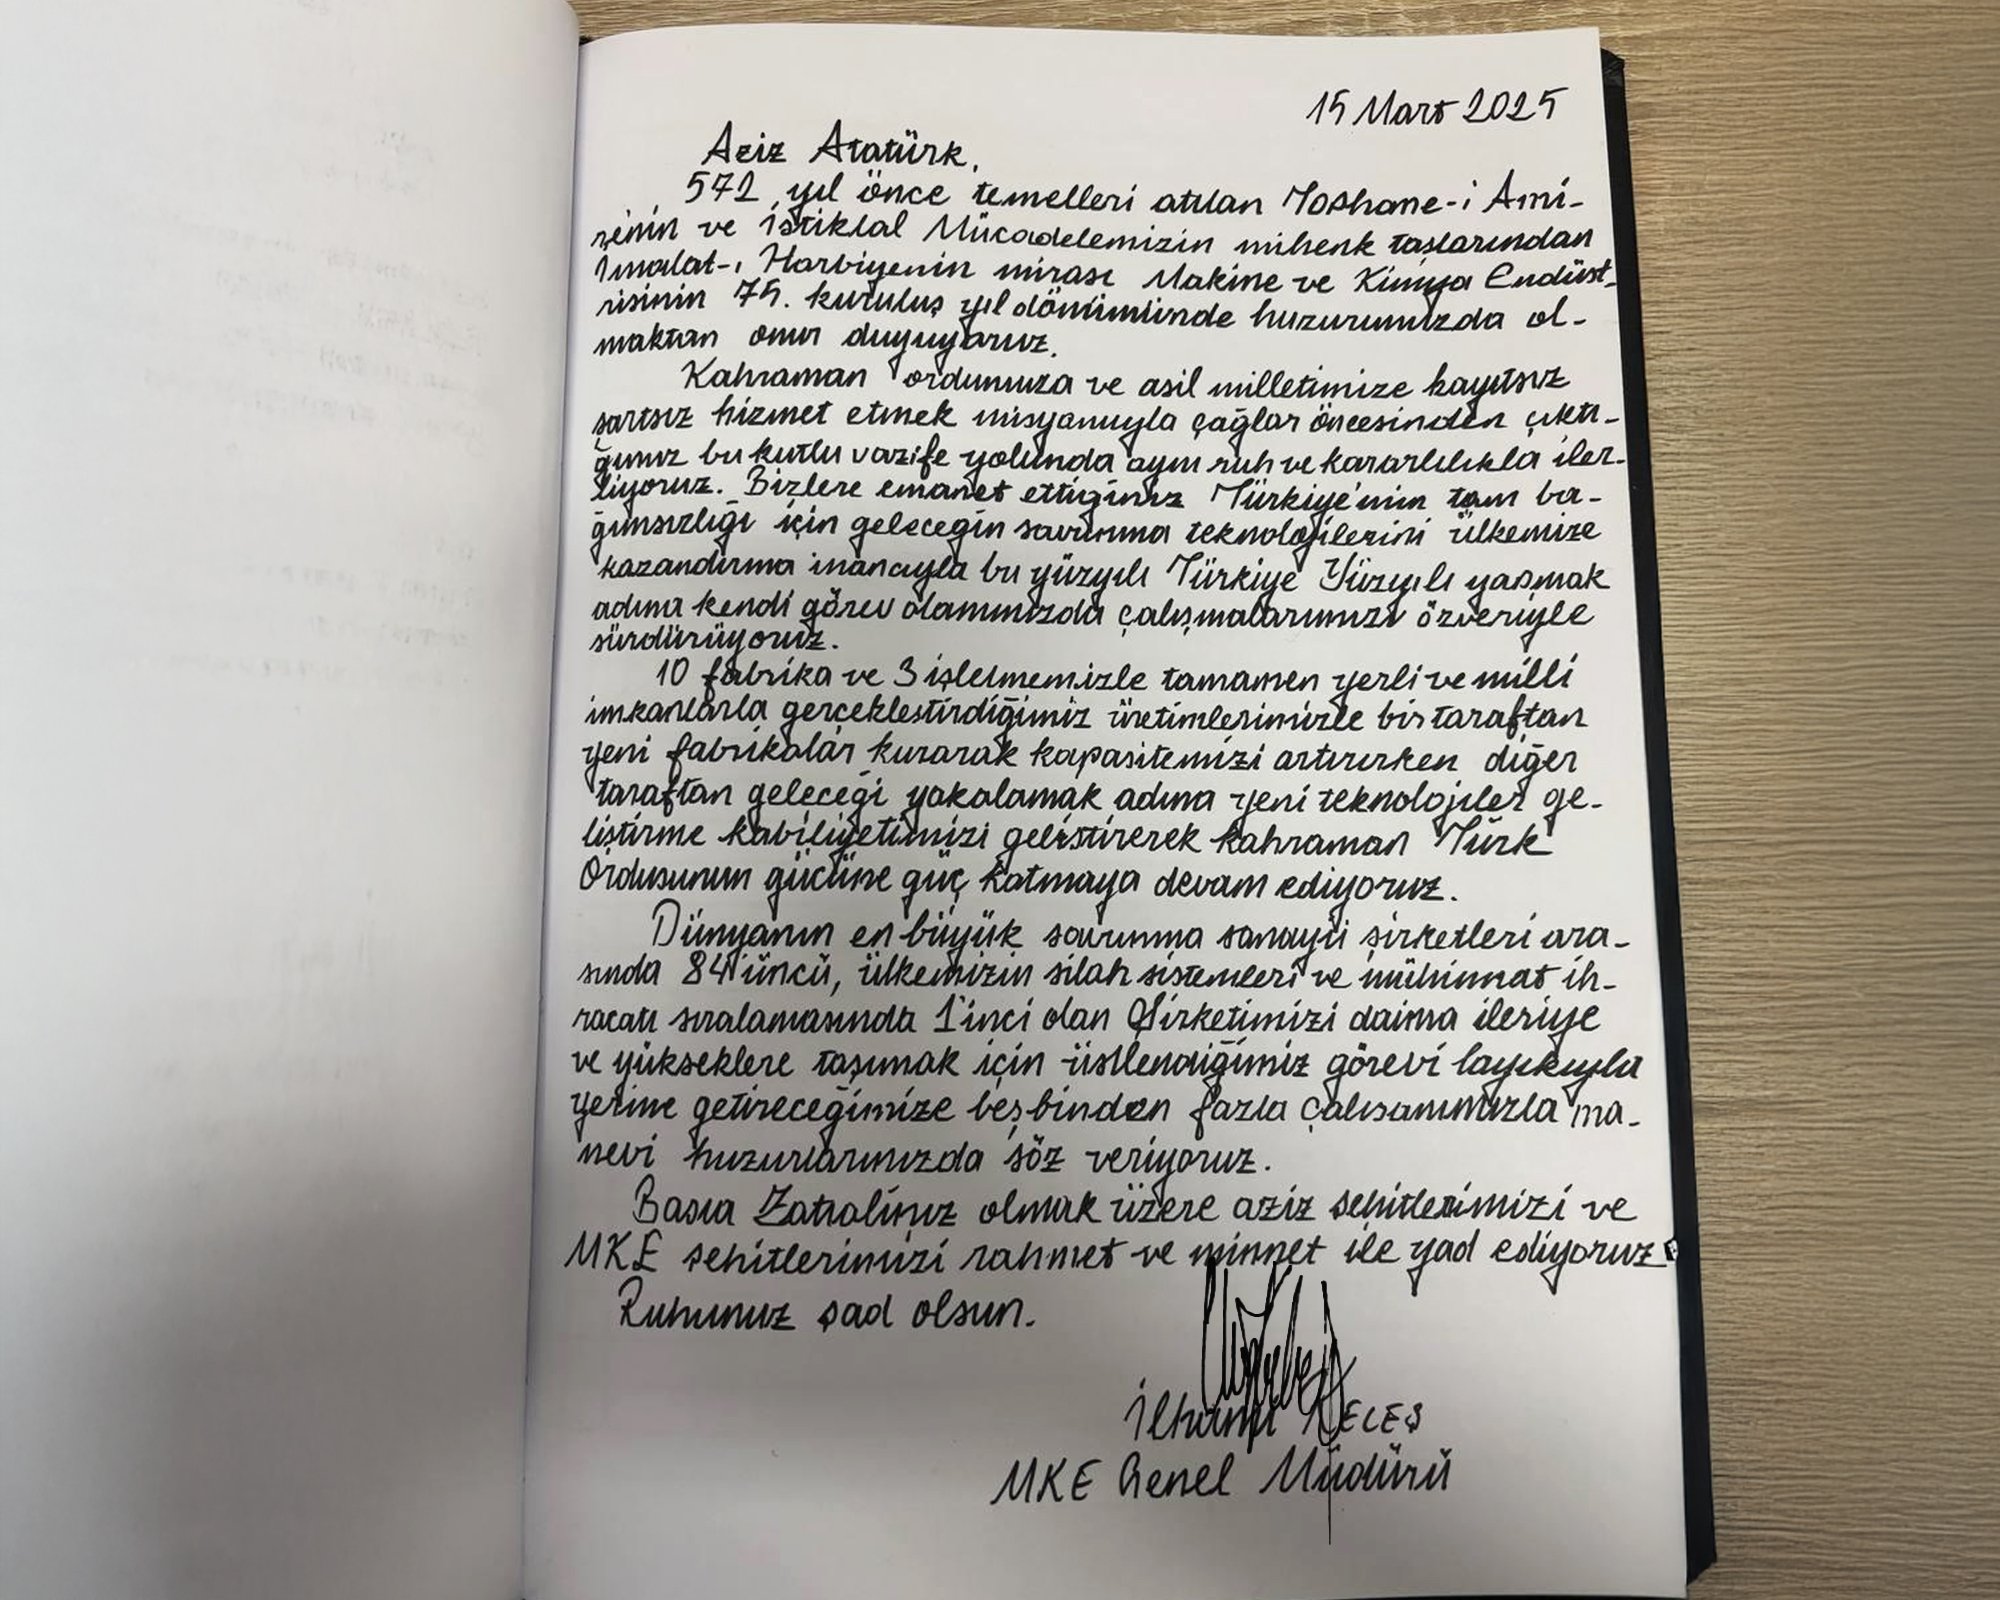 15 Mart 2025
Aziz Atatürk,
572 yıl önce temelleri atılan Tophane-i Ami-
renin ve İstiklal Mücadelemizin mihenk taşlarından
İmalat-ı Harbiyenin mirası Makine ve Kimya Endüst-
risinin 75. kuruluş yıl dönümünde huzurunuzda ol-
maktan onur duyuyoruz.
Kahraman ordumuza ve asil milletimize kayıtsız
şartsız hizmet etmek misyonuyla çağlar öncesinden çıktı-
ğımız bu kutlu vazife yolunda aynı ruh ve kararlılıkla iler-
liyoruz. Bizlere emanet ettiğiniz Türkiye'nin tam ba-
ğımsızlığı için geleceğin savunma teknolojilerini ülkemize
kazandırma inancıyla bu yüzyılı Türkiye Yüzyılı yapmak
adına kendi görev alanımızda çalışmalarımızı özveriyle
sürdürüyoruz.
10 fabrika ve 3 işletmemizle tamamen yerli ve milli
imkanlarla gerçekleştirdiğimiz üretimlerimizle bir taraftan
yeni fabrikalar kurarak kapasitemizi artırırken diğer
taraftan geleceği yakalamak adına yeni teknolojiler ge-
liştirme kabiliyetimizi geliştirerek kahraman Türk
Ordusunun gücüne güç katmaya devam ediyoruz.
Dünyanın en büyük savunma sanayii şirketleri ara-
sında 84'üncü, ülkemizin silah sistemleri ve mühimmat ih-
racatı sıralamasında 1'inci olan Şirketimizi daima ileriye
ve yükseklere taşımak için üstlendiğimiz görevi layıkıyla
yerine getireceğimize beş binden fazla çalışanımızla ma-
nevi huzurlarınızda söz veriyoruz.
Başta Zatıaliniz olmak üzere aziz şehitlerimizi ve
MKE şehitlerimizi rahmet ve minnet ile yad ediyoruz.
Ruhunuz şad olsun.
İlhami KELEŞ
MKE Genel Müdürü